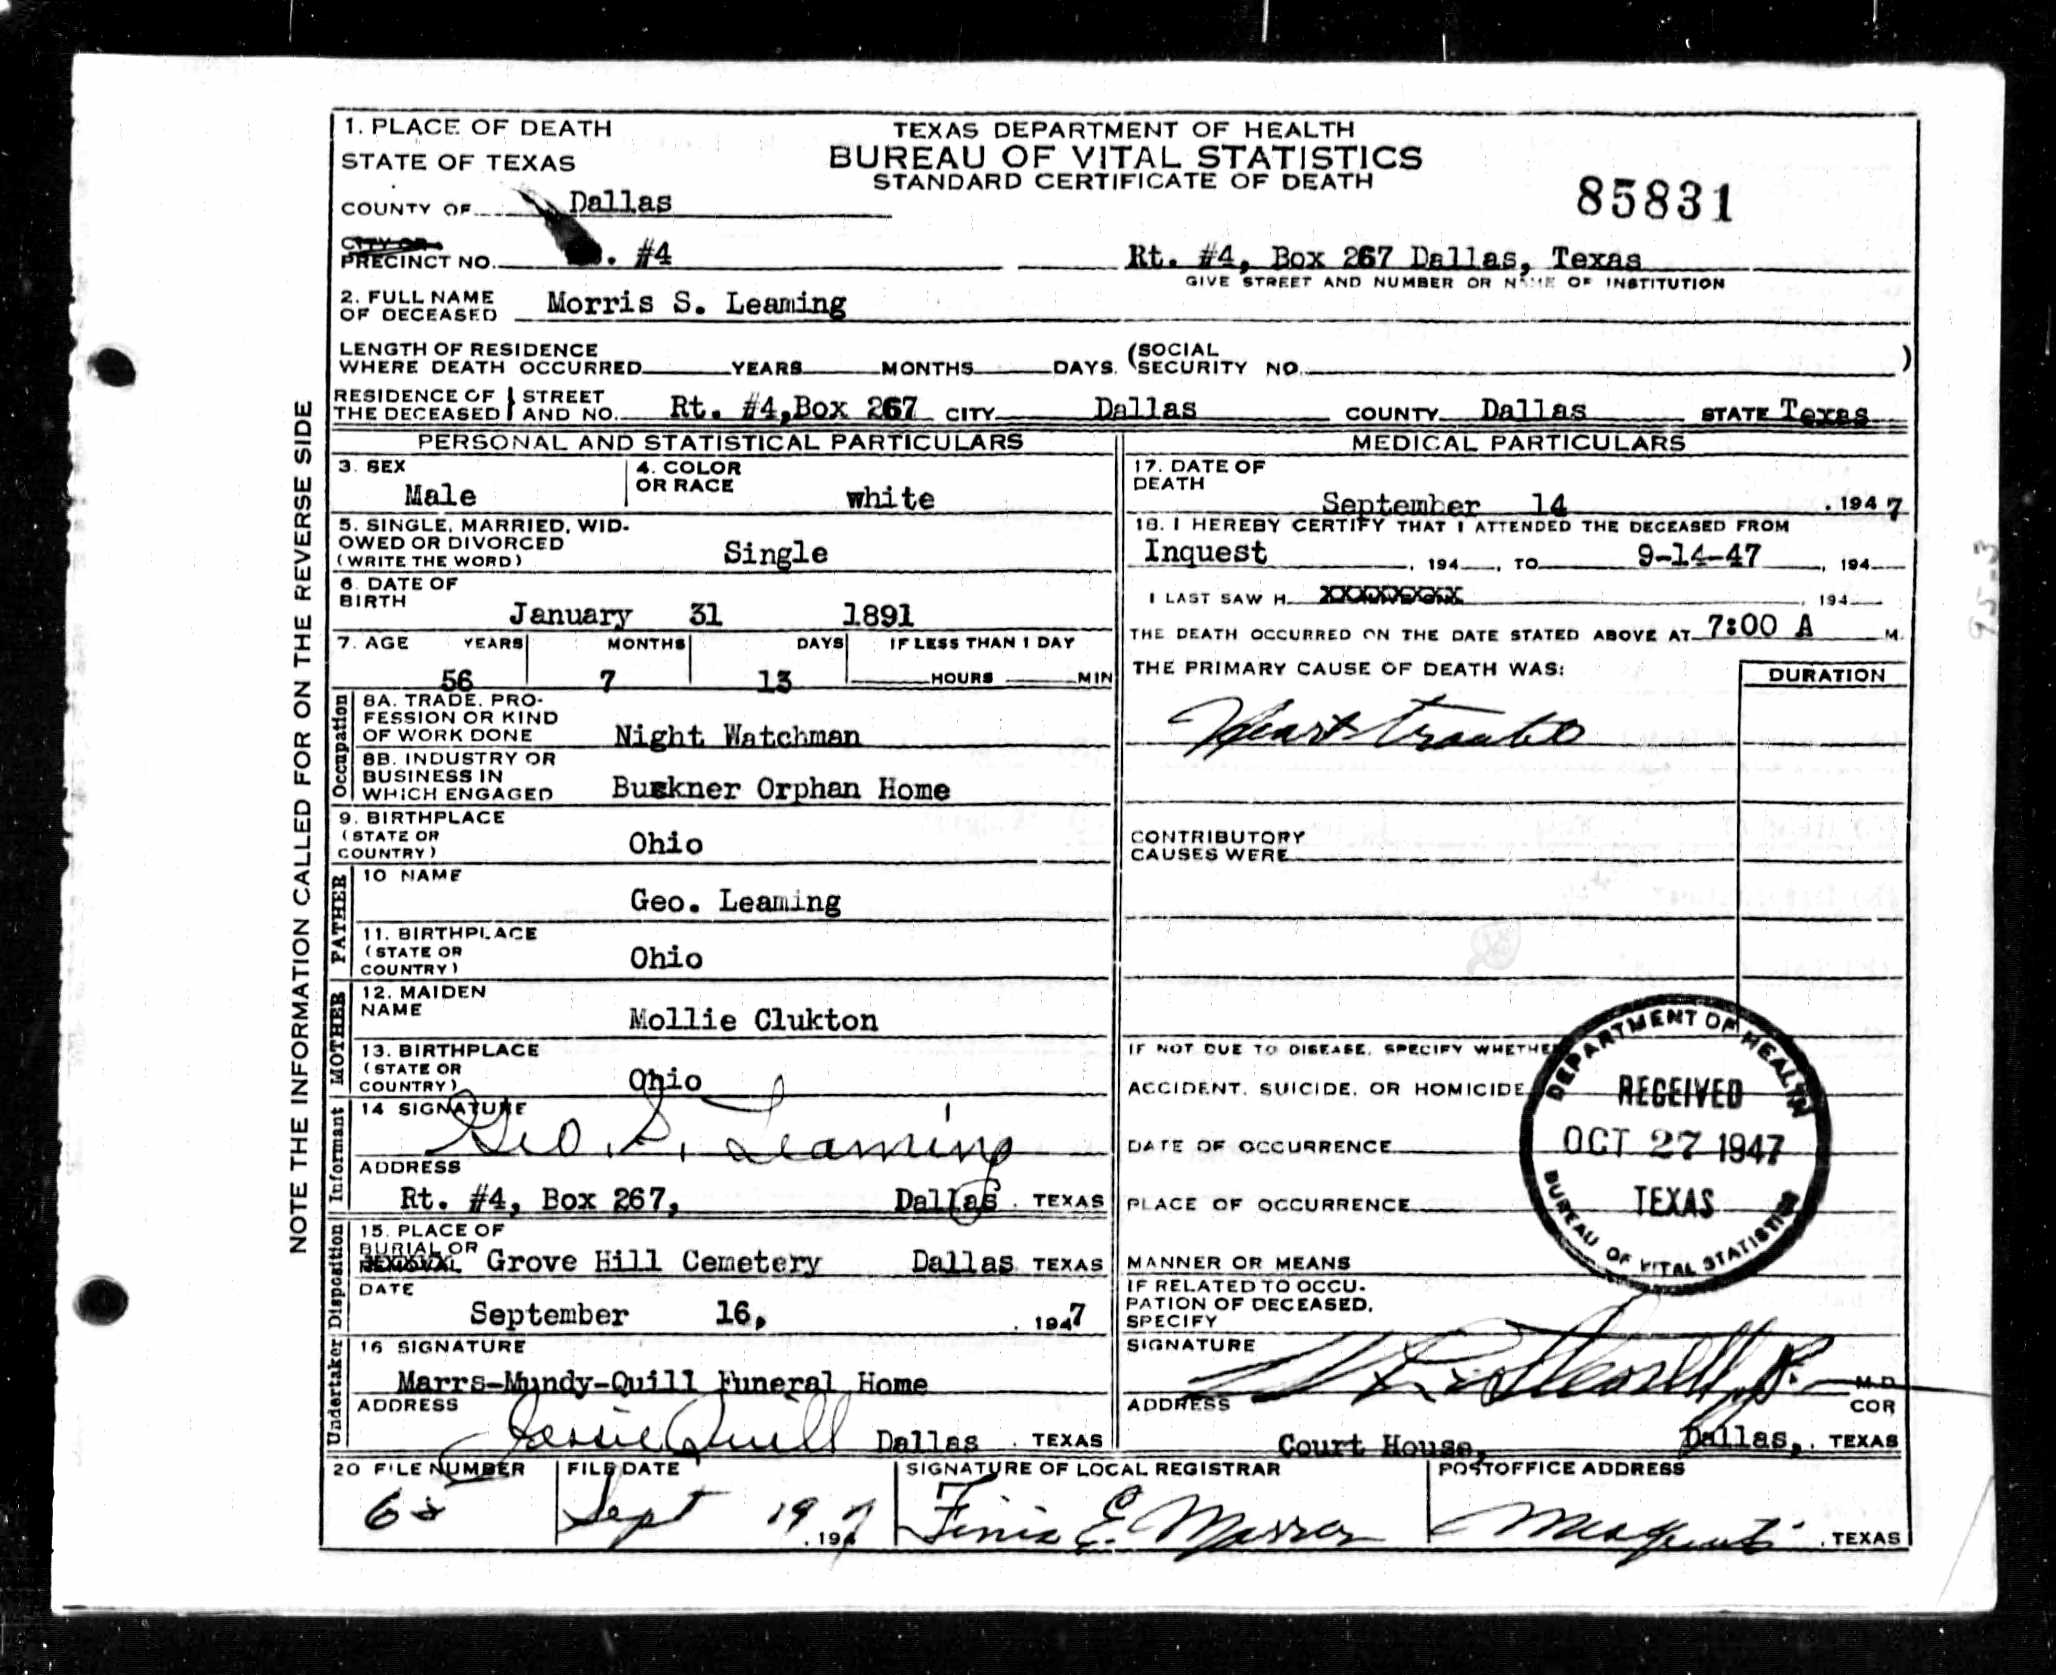 1. PLACE OF DEATH
STATE OF TEXAS
TEXAS DEPARTMENT OF HEALTH
BUREAU OF VITAL STATISTICS
STANDARD CERTIFICATE OF DEATH
85831
COUNTY OF Dallas
CITY OR
PRECINCT NO. #4 Rt. #4, Box 267 Dallas, Texas
GIVE STREET AND NUMBER OR NAME OF INSTITUTION
2. FULL NAME
OF DECEASED Morris S. Leaming
LENGTH OF RESIDENCE
WHERE DEATH OCCURRED YEARS MONTHS DAYS. (SOCIAL SECURITY NO. )
RESIDENCE OF THE DECEASED } STREET AND NO. Rt. #4,Box 267 CITY Dallas COUNTY Dallas STATE Texas
PERSONAL AND STATISTICAL PARTICULARS
3. SEX
Male
4. COLOR
OR RACE white
5. SINGLE, MARRIED, WID-
OWED OR DIVORCED
(WRITE THE WORD) Single
6. DATE OF
BIRTH January 31 1891
7. AGE YEARS MONTHS DAYS IF LESS THAN 1 DAY
56 7 13 HOURS MIN
Occupation
8A. TRADE, PRO-
FESSION OR KIND
OF WORK DONE Night Watchman
8B. INDUSTRY OR
BUSINESS IN
WHICH ENGAGED Buckner Orphan Home
9. BIRTHPLACE
(STATE OR
COUNTRY) Ohio
FATHER
10 NAME
Geo. Leaming
11. BIRTHPLACE
(STATE OR
COUNTRY) Ohio
MOTHER
12. MAIDEN
NAME Mollie Clukton
13. BIRTHPLACE
(STATE OR
COUNTRY) Ohio
Informant
14 SIGNATURE
Geo. S. Leaming
ADDRESS
Rt. #4, Box 267, Dallas . TEXAS
Disposition
15. PLACE OF
BURIAL OR
REMOVAL Grove Hill Cemetery Dallas TEXAS
DATE
September 16, . 1947
Undertaker
16 SIGNATURE
Marrs-Mundy-Quill Funeral Home
ADDRESS
Jessie Quill Dallas . TEXAS
MEDICAL PARTICULARS
17. DATE OF
DEATH
September 14 . 1947
18. I HEREBY CERTIFY THAT I ATTENDED THE DECEASED FROM
Inquest , 194 , TO 9-14-47 , 194
I LAST SAW H , 194
THE DEATH OCCURRED ON THE DATE STATED ABOVE AT 7:00 A M.
THE PRIMARY CAUSE OF DEATH WAS: DURATION
Heart trouble
CONTRIBUTORY
CAUSES WERE
IF NOT DUE TO DISEASE, SPECIFY WHETHER
ACCIDENT, SUICIDE, OR HOMICIDE
DATE OF OCCURRENCE
PLACE OF OCCURRENCE
MANNER OR MEANS
IF RELATED TO OCCU-
PATION OF DECEASED,
SPECIFY
DEPARTMENT OF HEALTH
RECEIVED
OCT 27 1947
TEXAS
BUREAU OF VITAL STATISTICS
SIGNATURE
M.D.
COR
ADDRESS
Court House, Dallas, . TEXAS
20 FILE NUMBER FILE DATE SIGNATURE OF LOCAL REGISTRAR POSTOFFICE ADDRESS
68 Sept 19 . 1947 E. Mesquite . TEXAS
NOTE THE INFORMATION CALLED FOR ON THE REVERSE SIDE
95-3